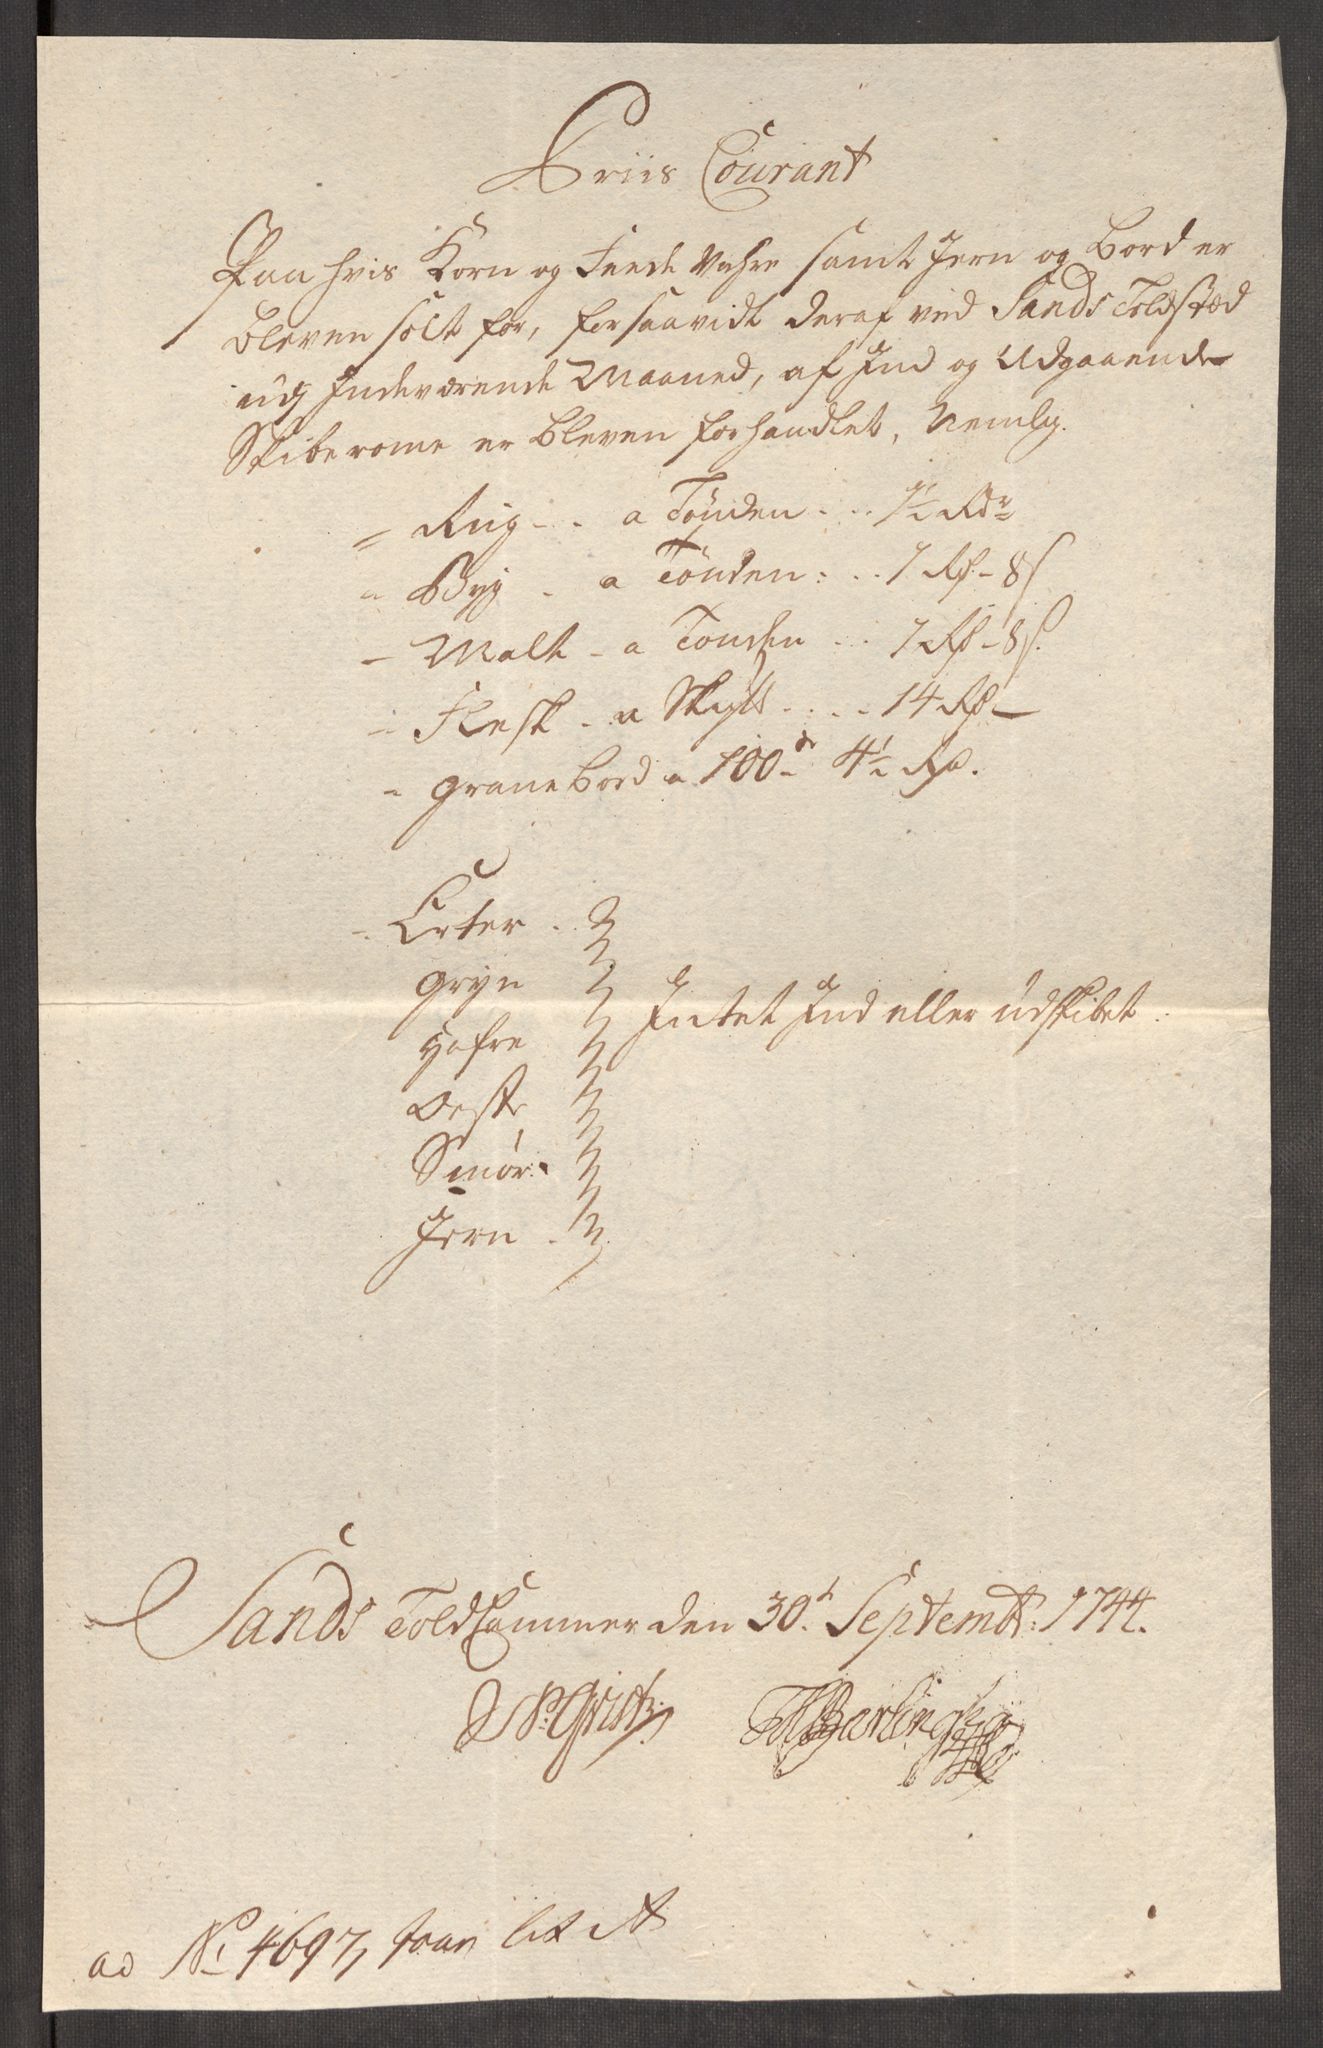 Priis Courant
Paa hvis Korn og Feede Vahre samt Jern og Bord er
bleven solt for, forsaavidt deraf ved Sands Toldsted
udj Indeværende Maaned, af Ind og Udgaaende
Skiberome er bleven forhandlet, Nemlig.
= Rug - - a Tønden - - - 1½ Rdr
- Byg - a Tönden: - - 1 Rd - 8 s
- Malt - a Tonden - - 1 Rd - 8 s.
- Flesk - a Skipt - - - - 14 Rd -
- grane bord a 100de 4½ Rd.
- Erter - -
gryn
Hafre
Oest
Smør.
Jern -
Intet Ind eller udskibet.
Sands Told Cammer den 30t. Septembr: 1744.
ad No 4697, Lit A